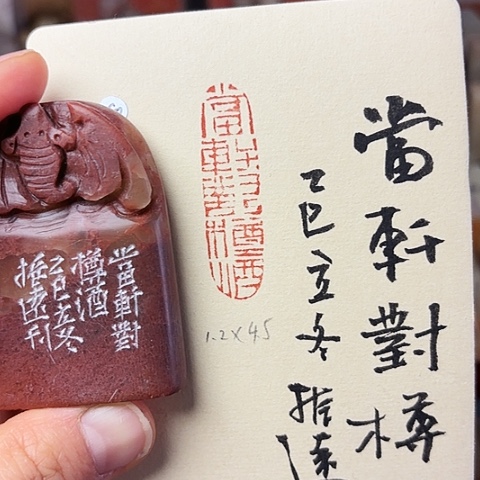 當軒對樽
乙巳立冬
當軒對樽酒
1.2×4.5
當軒對
樽酒
乙巳立冬